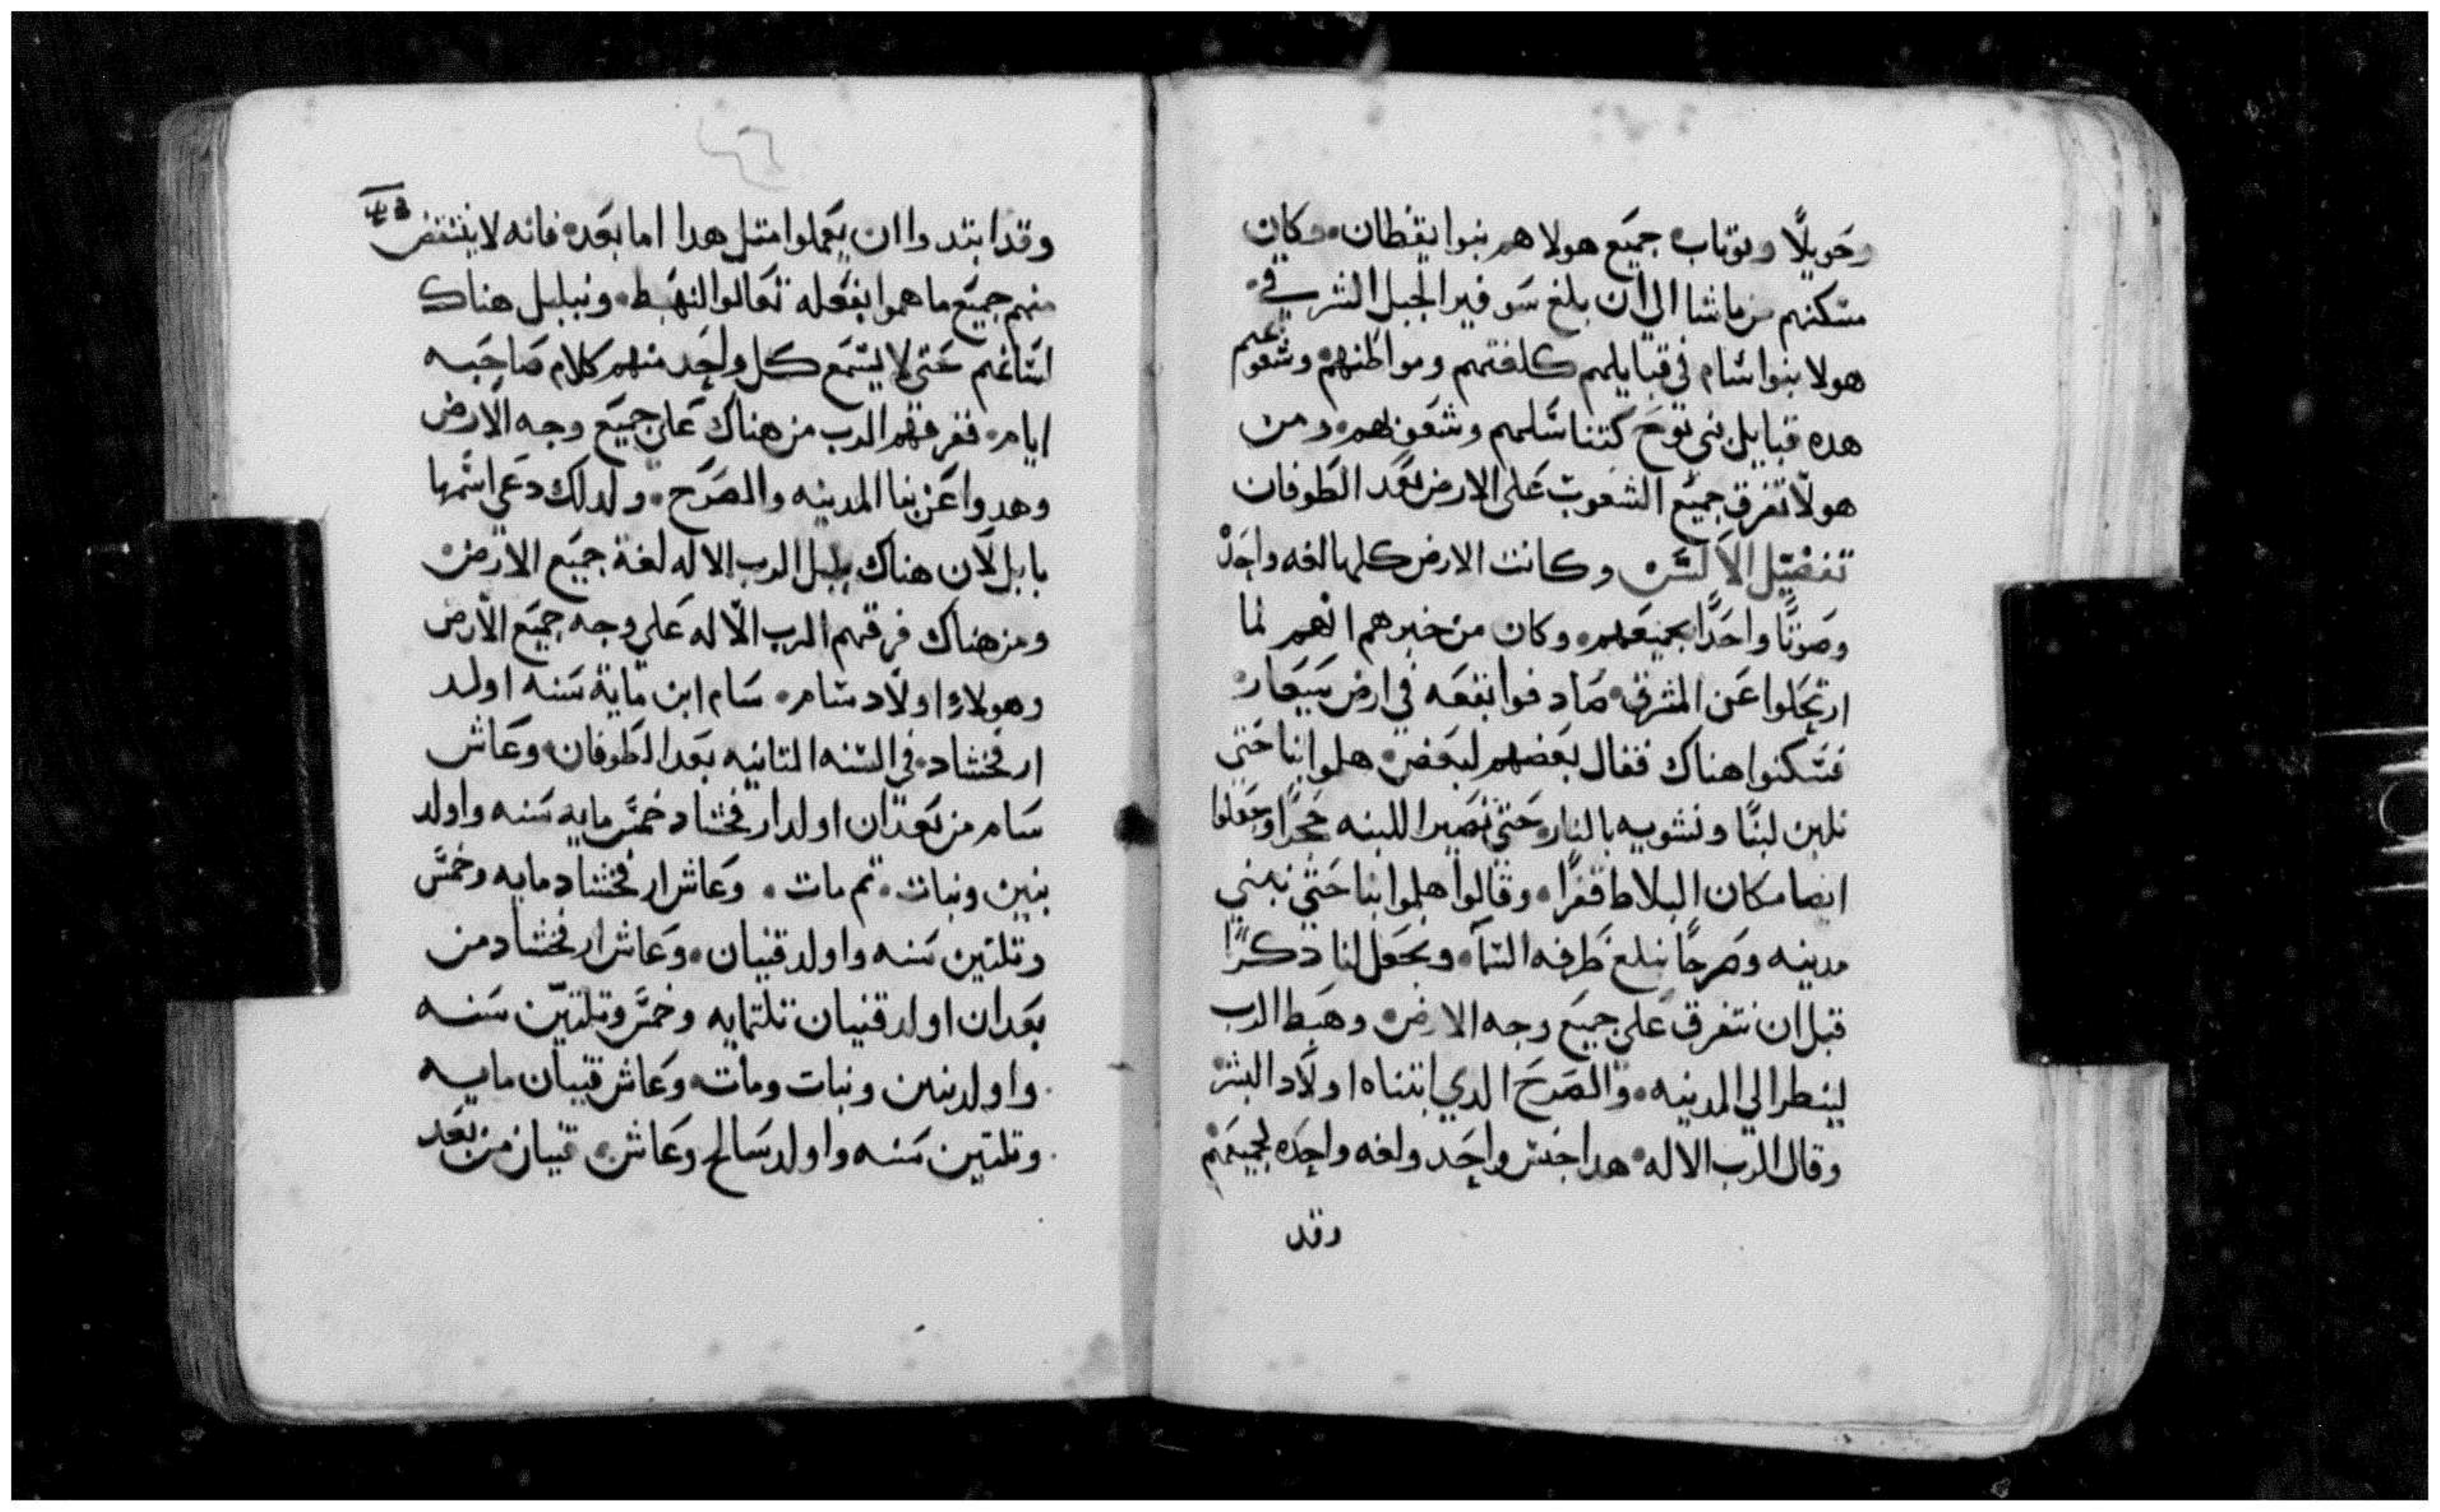 وحَويلًا ويوباب جميَع هولا هم بنوا يقطان وكان
مسَكنهم من ماشا الي ان بلغ سَوفير الجبل الشرقي
هولا بنوا سَام في قبايلهم كلغتهم ومواطنهم وشعوبهم
هده قبايل بني نوحَ كتناسَلهم وشعَوبهم ومن
هولا تفرق جميَع الشعَوب عَلي الارض بعَد الطوفان
تفصَيل الالسَن وكانت الارض كلها لغه واحَده
وصَوتًا واحَدًا لجميعَهم وكان من خبرهم انهم لما
ارتحَلوا عَن المشرق صَادفوا بقعَه في ارض سَيعَار
فسَكنوا هناك فقال بعَضهم لبعَض هلموا بنا حَتي
نلبن لبنًا ونشويه بالنار حَتي تصَير اللبنه حَجرًا وجعَلوا
ايضا مكان البلاط قفرًا وقالوا هلموا بنا حَتي نبني
مدينه وصَرحًا يبلغ طَرفه السَمآ ونجعَل لنا دكرًا
قبل ان نتفرق عَلي جميَع وجه الارض وهبَط الرب
لينظر الي المدينه والصَرحَ الدي ابتناه اولاد البشر
وقال الرب الاله هدا جنسَ واحَد ولغه واحَده لجميعَهم
وقد
وقد ابتدوا ان يعَملوا متل هدا اما بعَده فانه لا ينتقض
منهم جميَع ما هموا بفعَله تعَالوا لنهبَط ونبلبل هناك
السَاغم حَتي لا يسَمع كل واحَد منهم كلام صَاحَبه
ايام ففرقهم الرب من هناك عَلي جميَع وجه الارض
وهدوا عَن بنا المدينه والصَرحَ ولدلك دعَي اسَمها
بابل لان هناك بلبل الرب الاله لغة جميَع الارض
ومن هناك فرقهم الرب الاله عَلي وجه جميَع الارض
وهولاء اولاد سَام سَام ابن مَاية سَنه اولد
ارفخشاد في السَنه التانيه بعَد الطَوفان وعَاش
سَام من بعَد ان اولد ارفخشاد خمسَ مايه سَنه واولد
بنين وبنات تم مات وعَاش ارفخشاد مايه وخمسَ
وتلتين سَنه واولد قنيان وعَاش ارفخشاد من
بعَد ان اولد قنيان تلتمايه وخمسَ وتلتين سَنه
واولد بنين وبنات ومات وعَاش قنيان مايه
وتلتين سَنه واولد سَالح وعَاش قنيان من بعَد